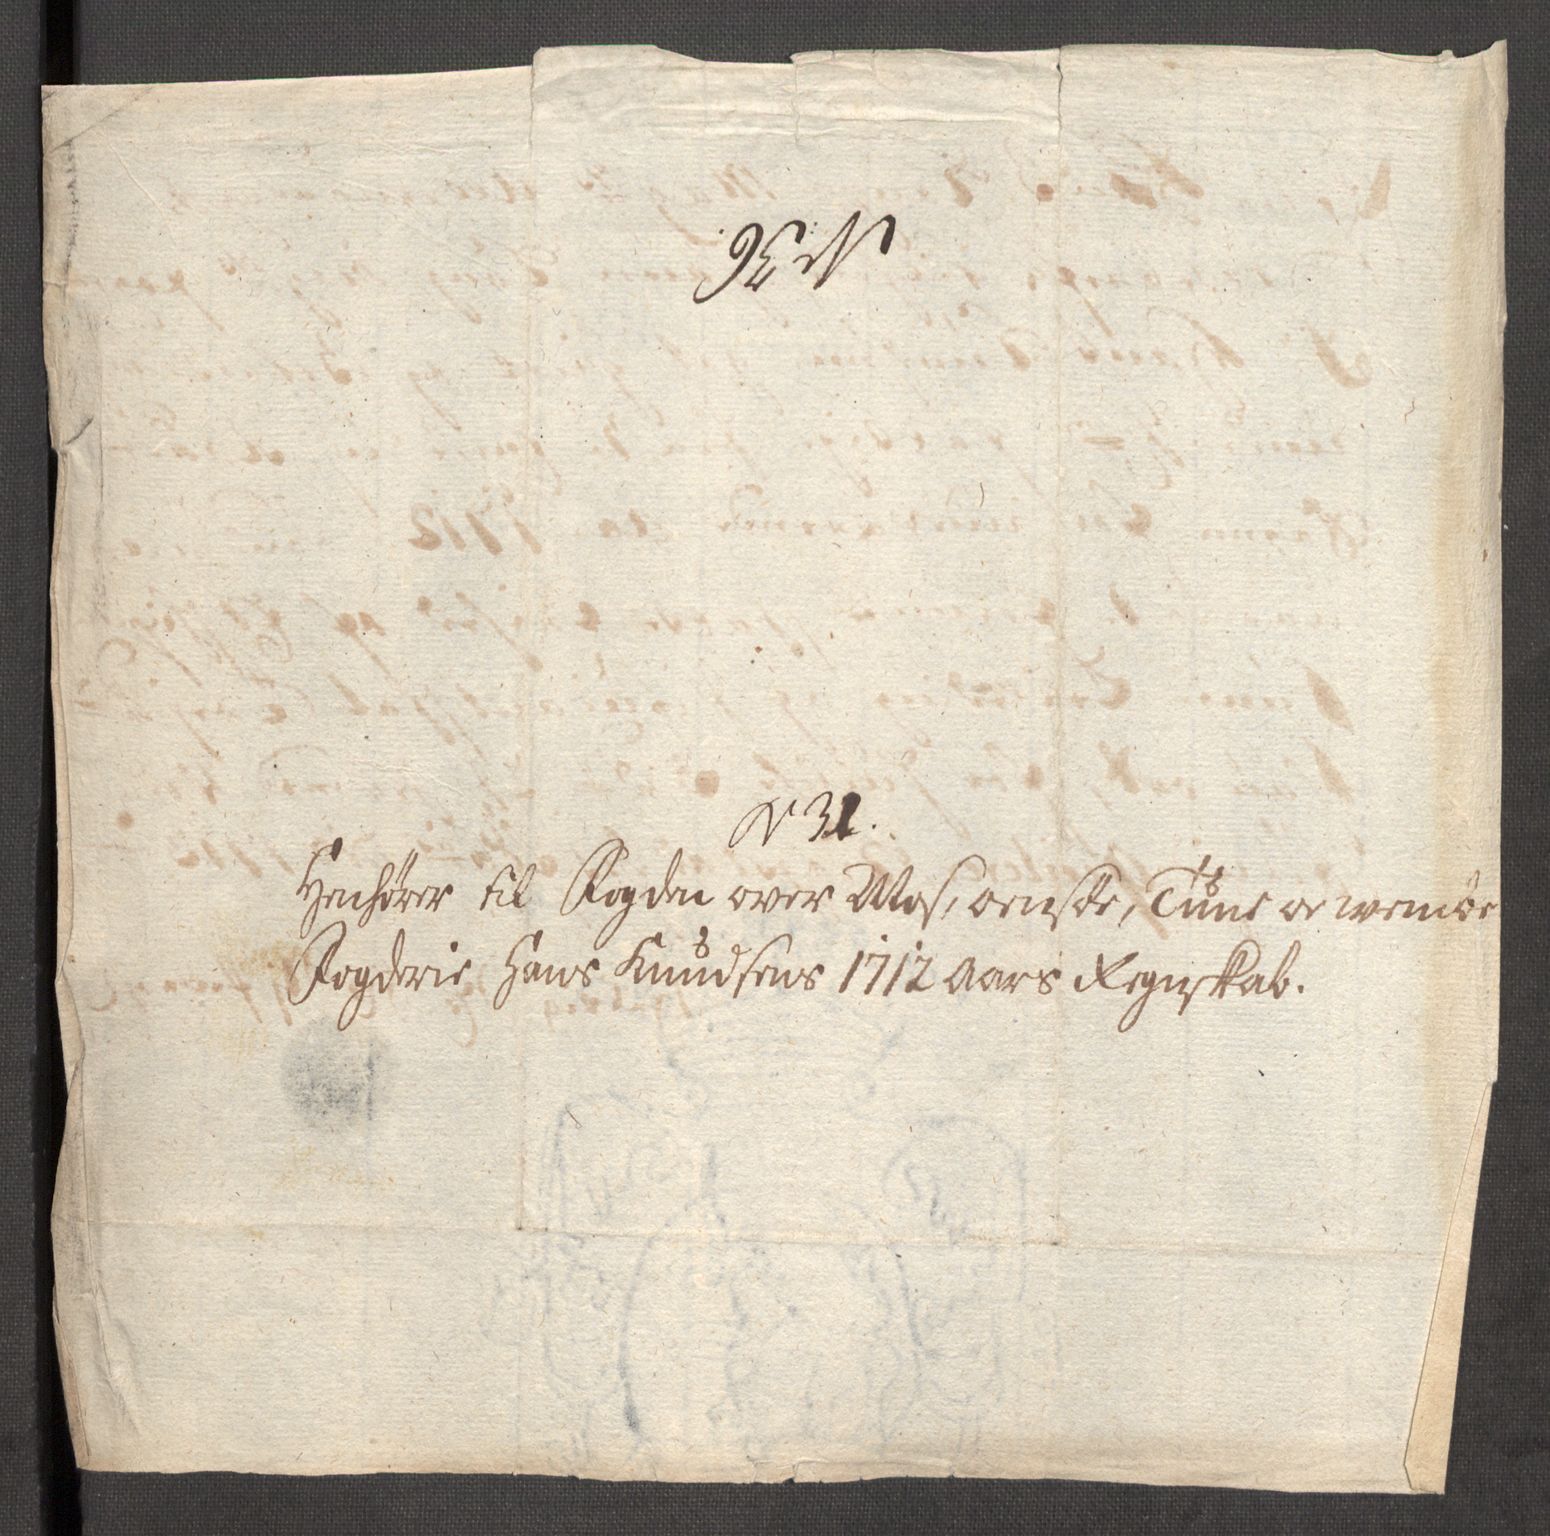 No 36.
N 31.
Henhører til Fogden over Mos, oensøe, Tune oc wemøe
Fogderie Hans Knudsens 1712 Aars Regnskab.